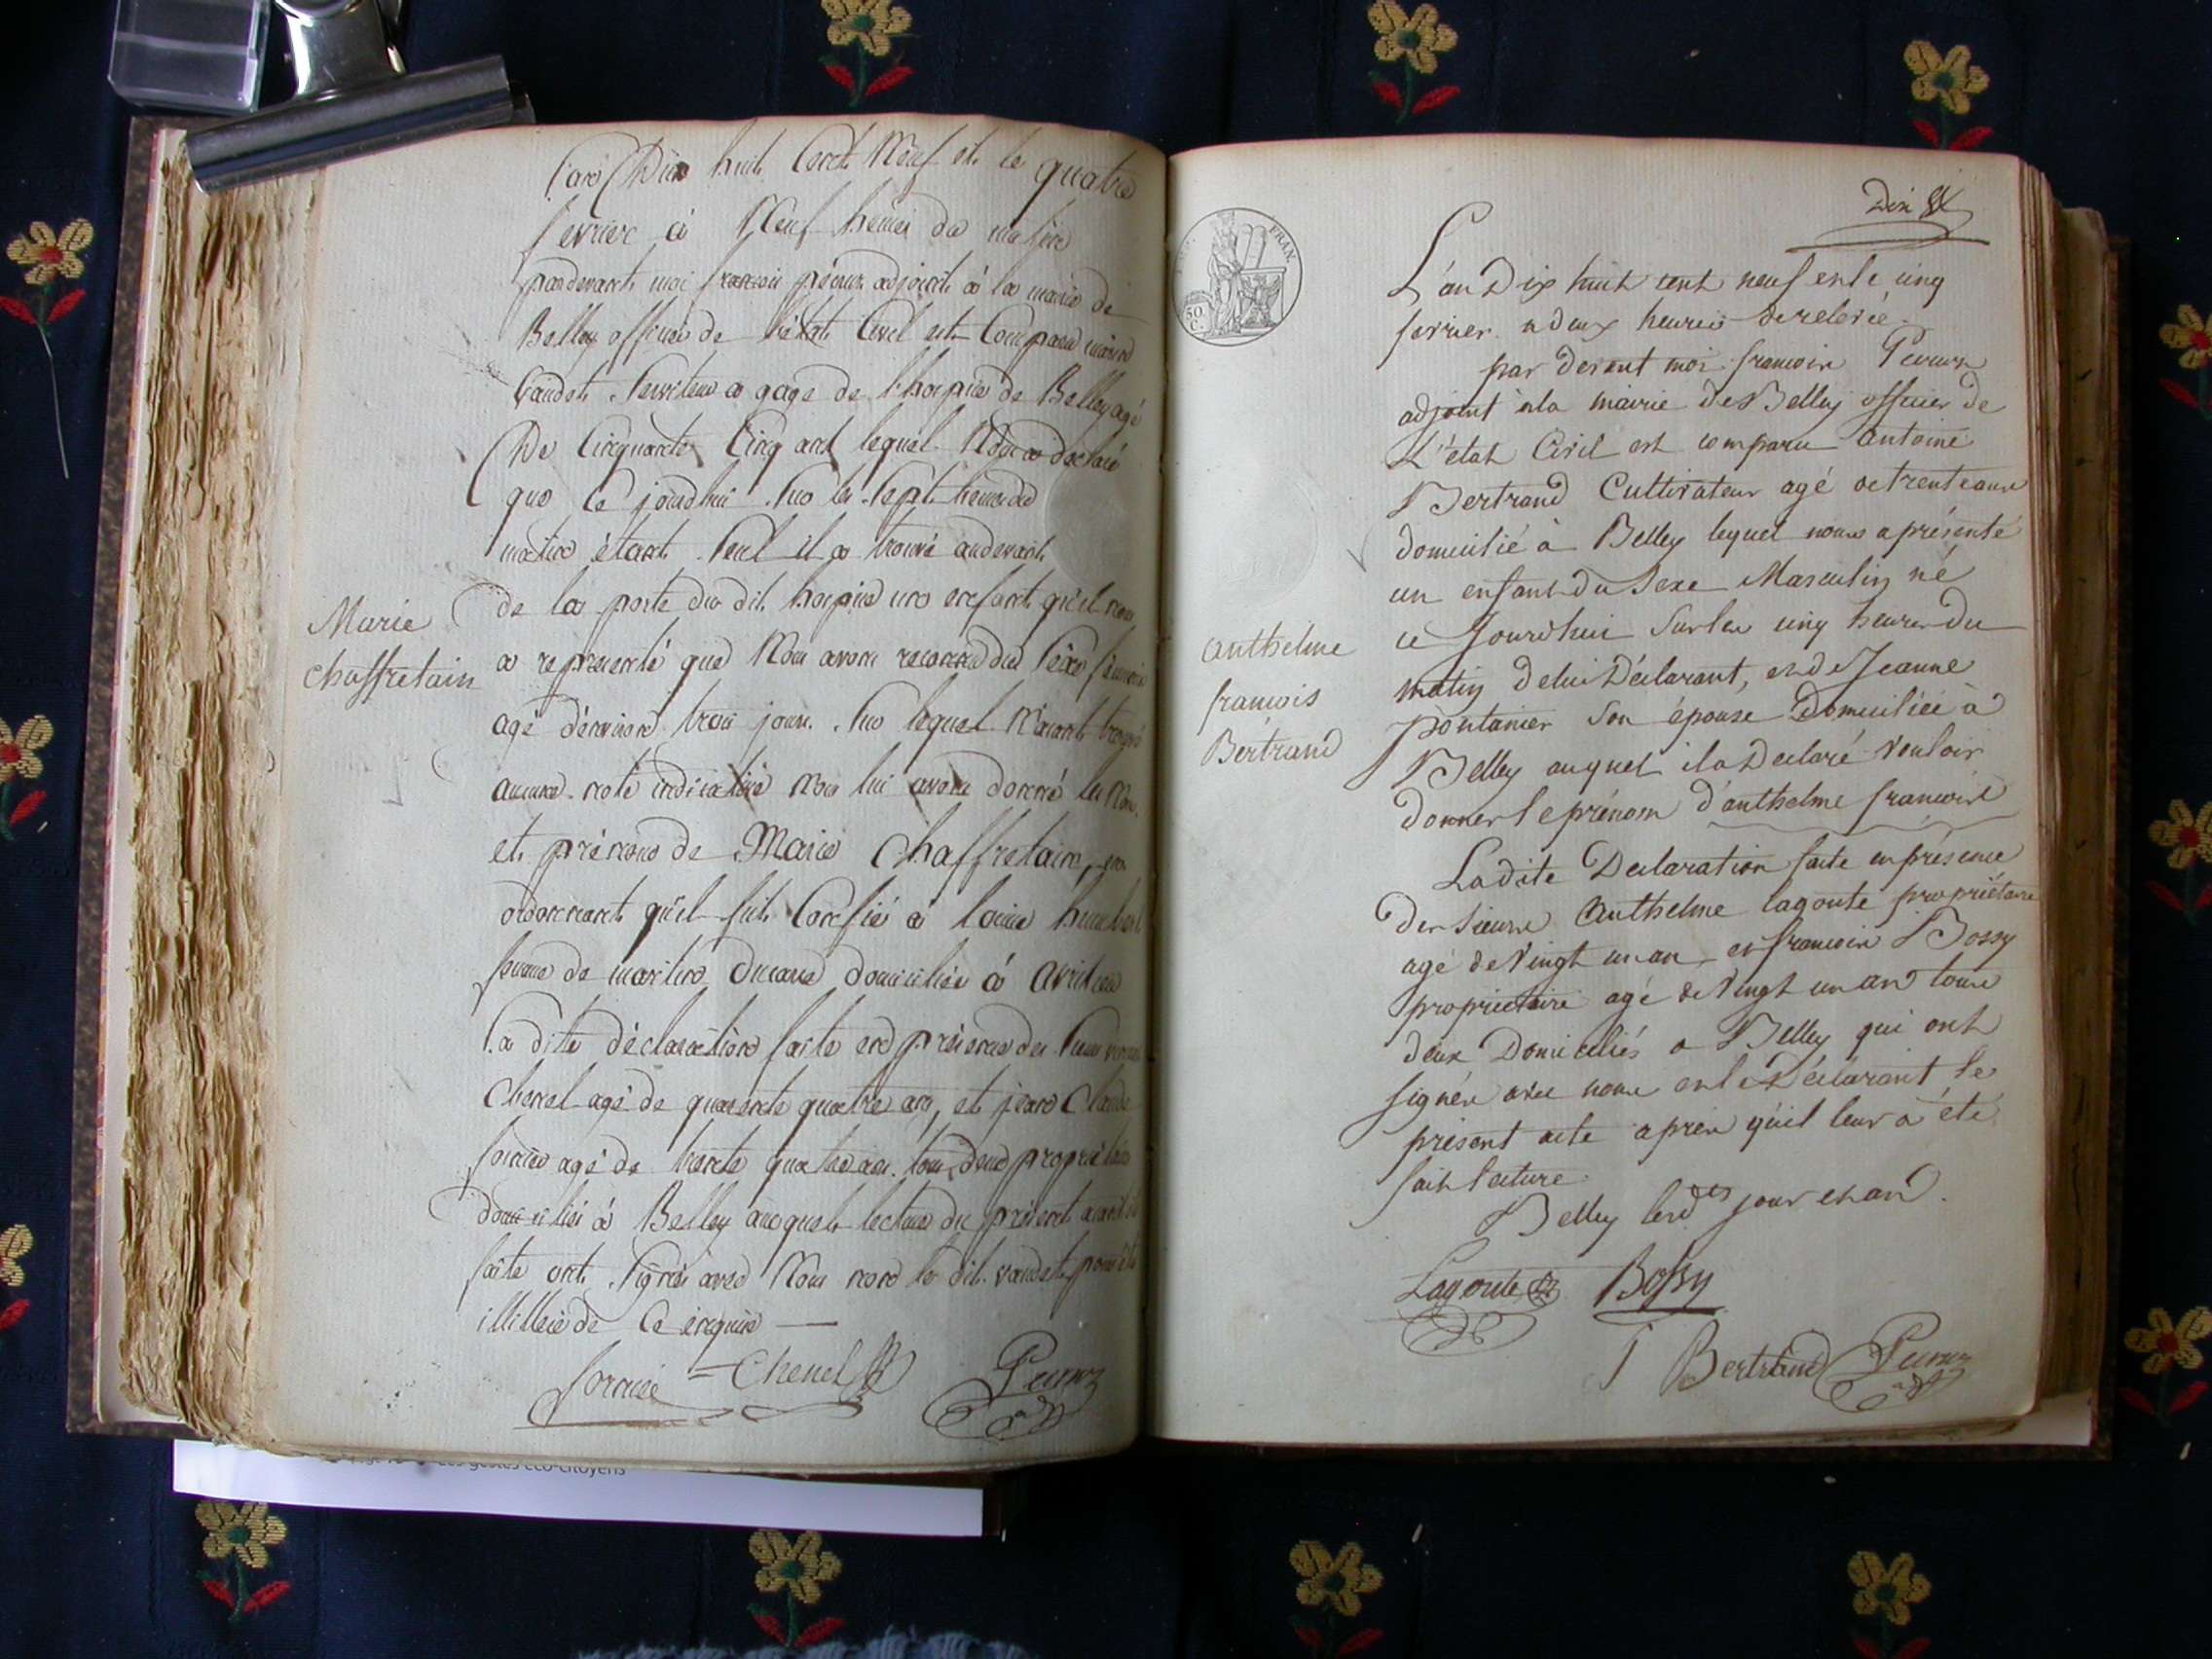 Marie
chaffretain
L'an Dix huit Cent Neuf et le quatre
fevrier à Neuf heures du matin
pardevant moi francois péeurs adjoint à la mairie de
Belley officier de l'état Civil est Comparu
Vaudet Serviteur a gage de l'hospice de Belley agé
De Cinquante Cinq ans lequel Nous a declaré
que Ce jourdhui Sur les Sept heures du
matin étant Seul il a trouvé audevant
de la porte du dit hospice un enfant qu'il nous
a représenté que Nous avons reconnu du Sexe féminin
agé d'environ trois jours Sur lequel N'ayant trouvé
aucune note indicative Nous lui avons donné les Nom
et prénom de Marie Chaffretain, en
ordonnant qu'il fut Confié à Louise humbert
femme de domiciliée à
La dite déclaration faite en présence des Sieurs
Chenel agé de quarante quatre ans, et jean Claude
agé de trente quatre ans tous deux propriétaires
domiciliés à Belley auxquels lecture du présent ayant été
faite ont Signés avec Nous non le dit vaudet pour être
illitéré de Ce enquis —
Chenel
Dix
FRAN.
50
C.
anthelme
francois
Bertrand
L'an Dix huit cent neuf et le cinq
fevrier a deux heures de relevée
par devant moi francois
adjoint à la mairie de Belley officier de
L'état Civil est comparu antoine
Bertrand Cultivateur agé de trente ans
domicilié à Belley lequel nous a présenté
un enfant du Sexe Masculin né
ce Jourd'hui Sur les cinq heures du
matin de lui Déclarant, et de Jeanne
pontanier Son épouse Domiciliée à
Belley auquel il a Declaré vouloir
donner le prénom d'anthelme francois
La dite Declaration faite en présence
des Sieurs Anthelme lagoute propriétaire
agé de vingt un ans et francois Bossy
propriettaire agé de vingt un ans tous
deux Domiciliés a Belley qui ont
signés avec nous et le Déclarant le
présent acte après qu'il leur a été
fait lecture.
Belley les d.es jour et an.
Lagoute Bossy
Bertrand
Les gestes éco-citoyens